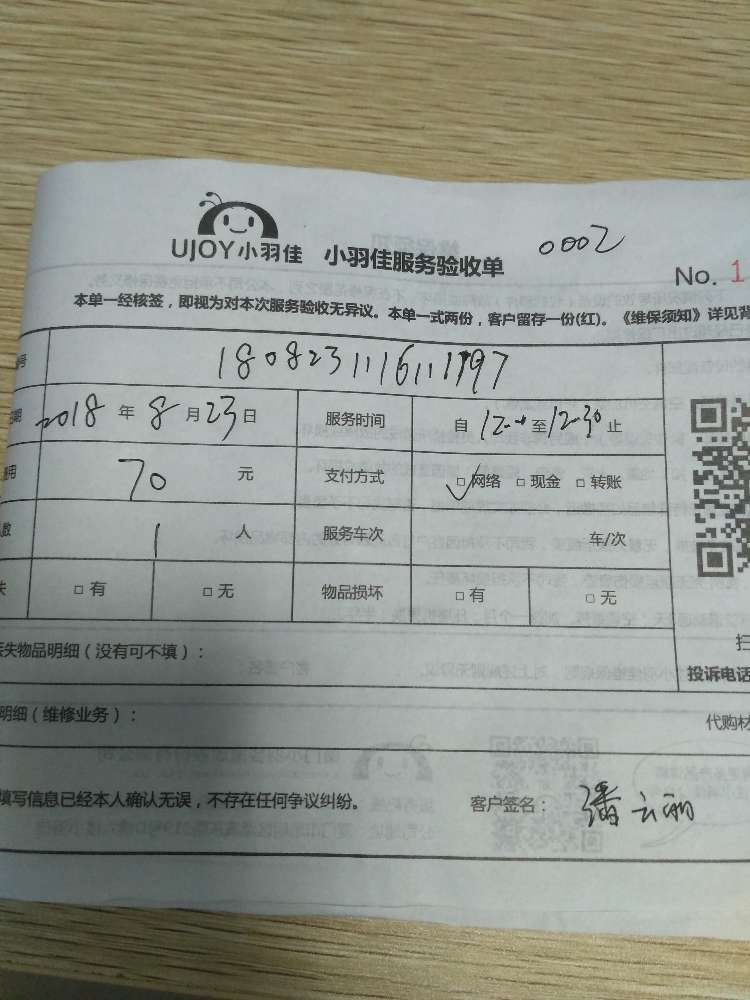 UJOY小羽佳 小羽佳服务验收单 0002
No. 1
本单一经核签，即视为对本次服务验收无异议。本单一式两份，客户留存一份(红)。《维保须知》详见背
号 180823111611197
日期 2018 年 8 月 23 日 服务时间 自 12-- 至 12-30 止
费用 70 元 支付方式 ✓□网络 □现金 □转账
人数 1 人 服务车次 车/次
失 □有 □无 物品损坏 □有 □无
扫
丢失物品明细（没有可不填）： 投诉电话
明细（维修业务）： 代购材
填写信息已经本人确认无误，不存在任何争议纠纷。 客户签名： 潘云丽